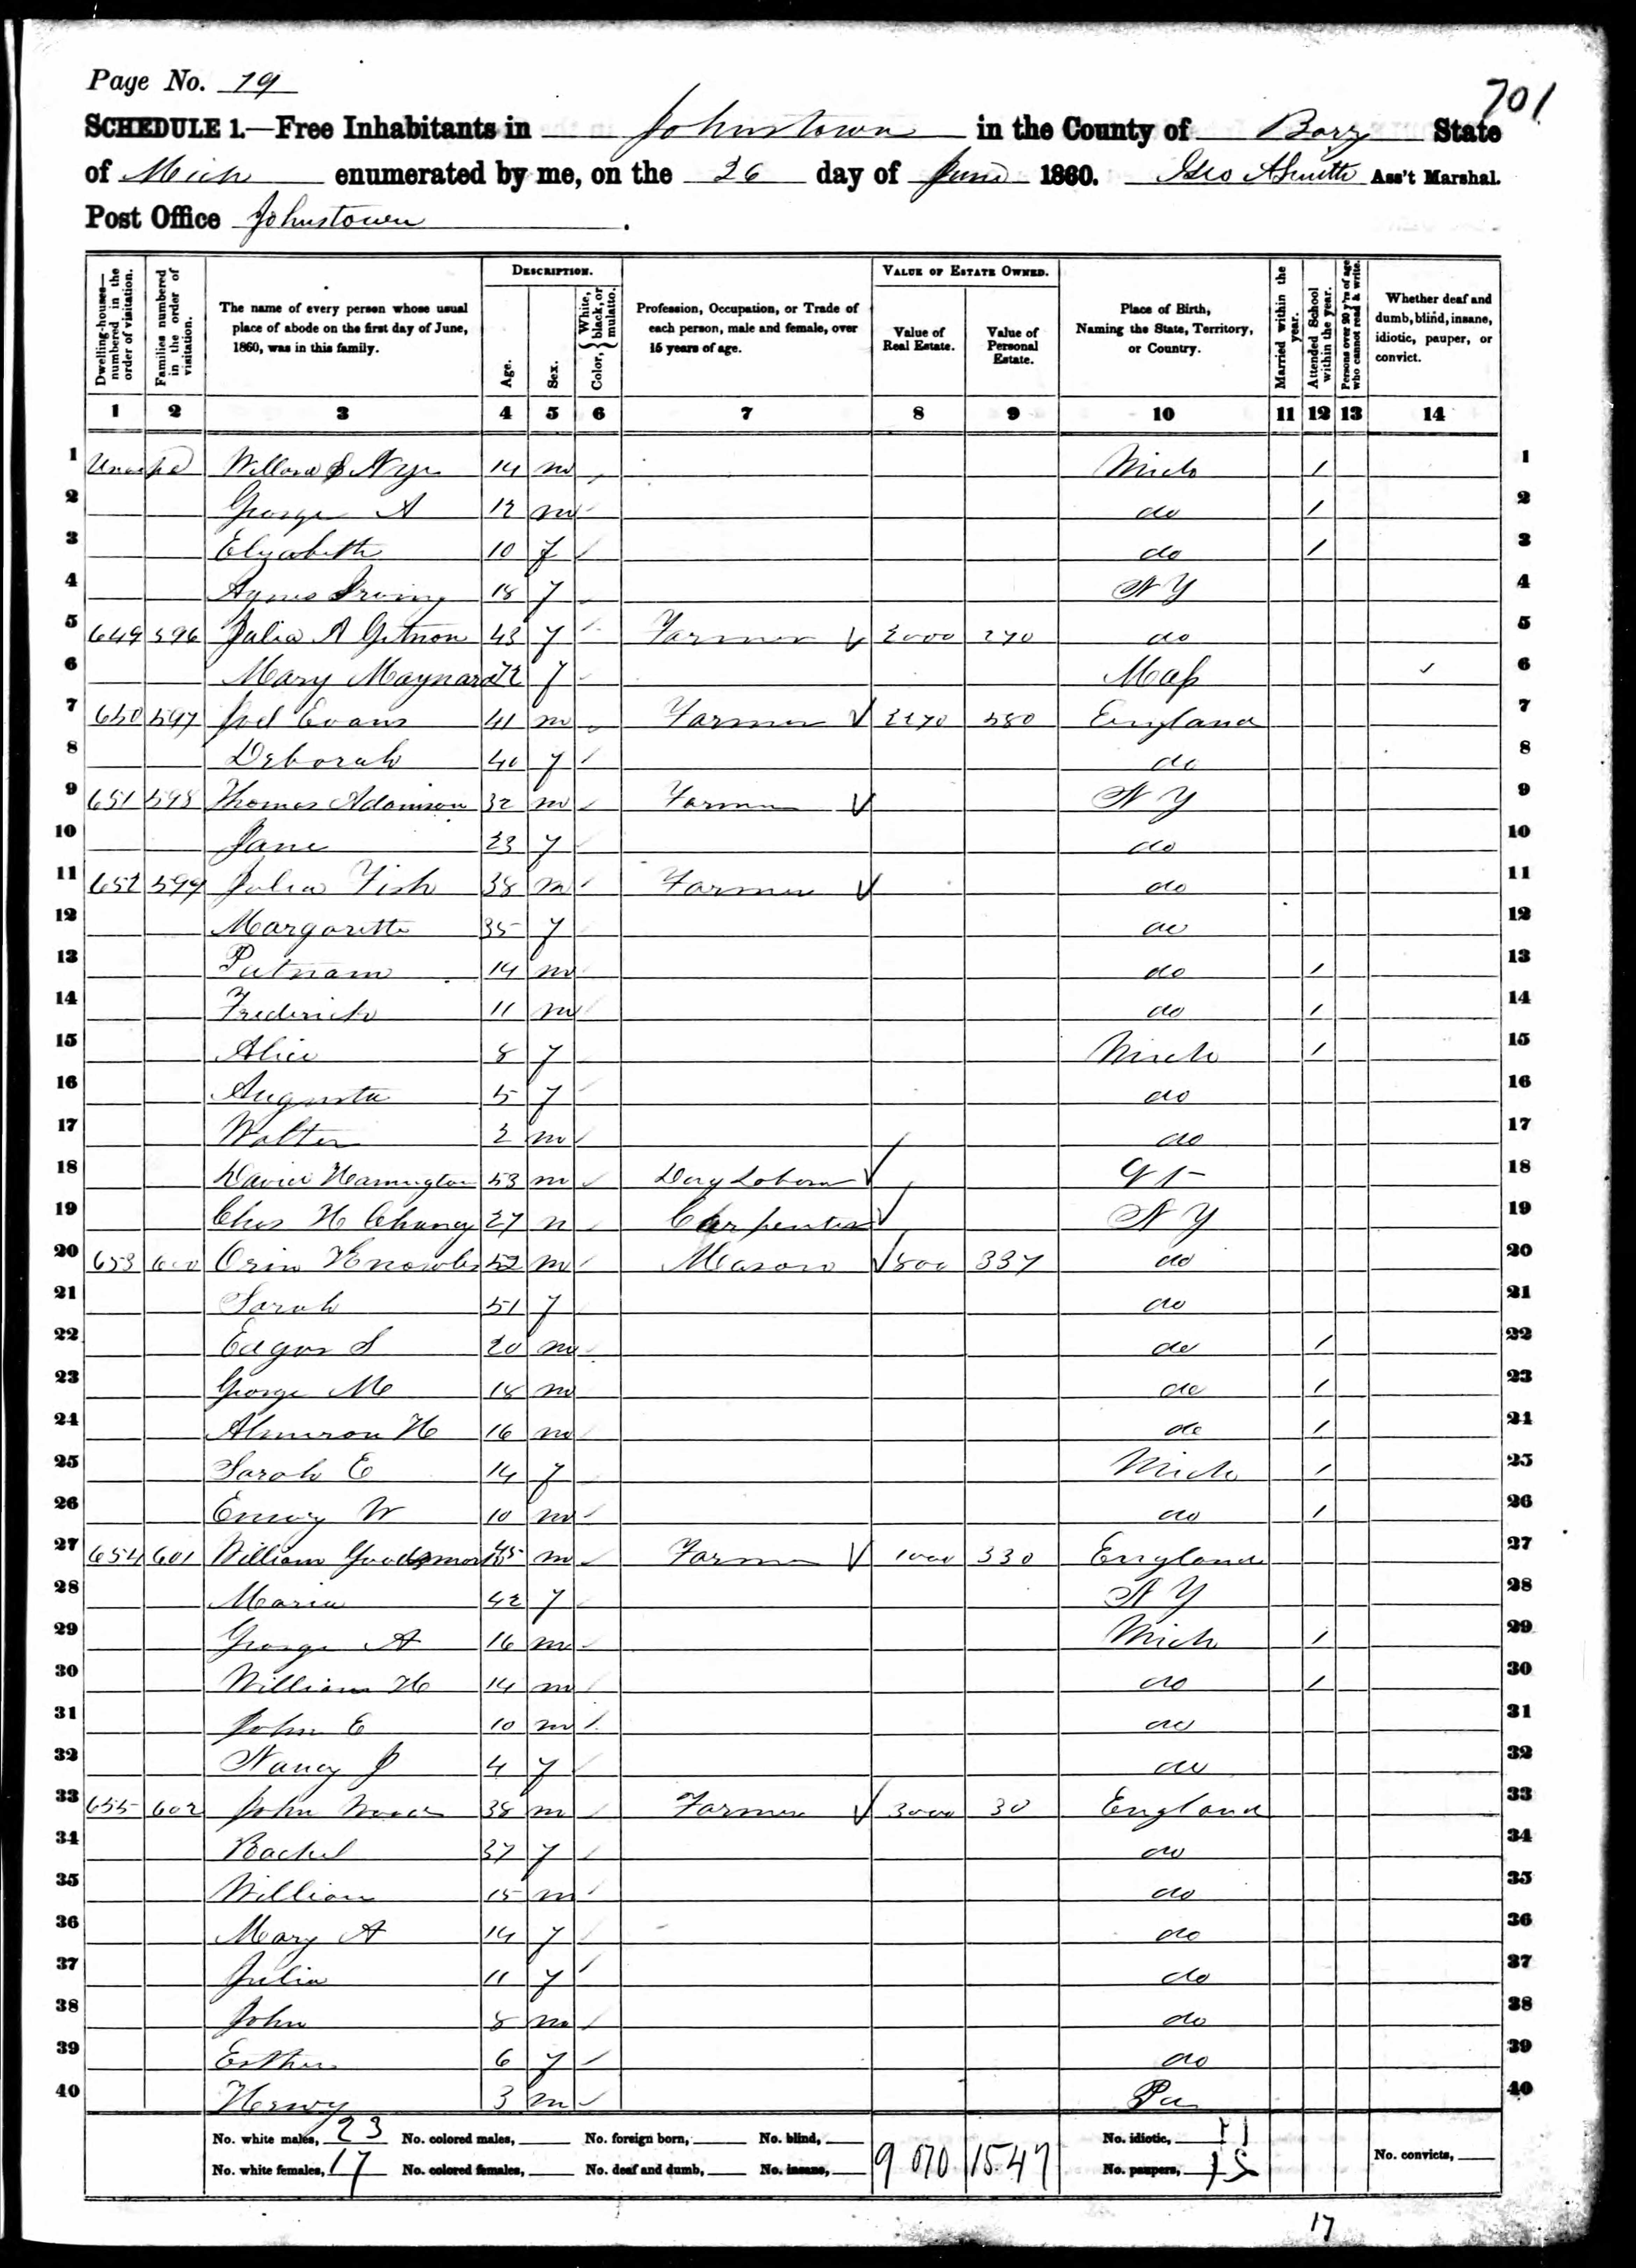 Page No. 79
701
SCHEDULE 1.—Free Inhabitants in Johnstown in the County of Barry State
of Mich enumerated by me, on the 26 day of June 1860. Geo A Smith Ass't Marshal.
Post Office Johnstown.
Dwelling-houses—numbered in the order of visitation.
Families numbered in the order of visitation.
The name of every person whose usual place of abode on the first day of June, 1860, was in this family.
DESCRIPTION.
Age.
Sex.
Color, { White, black, or mulatto.
Profession, Occupation, or Trade of each person, male and female, over 15 years of age.
VALUE OF ESTATE OWNED.
Value of Real Estate.
Value of Personal Estate.
Place of Birth, Naming the State, Territory, or Country.
Married within the year.
Attended School within the year.
Persons over 20 y'rs of age who cannot read & write.
Whether deaf and dumb, blind, insane, idiotic, pauper, or convict.
1 2 3 4 5 6 7 8 9 10 11 12 13 14
1 Willard Nye 14 m Mich / 1
2 George A 12 m do / 2
3 Elizabeth 10 f do / 3
4 Agnes Irving 18 f N Y 4
5 649 596 Julia A 43 f Farmer 2000 270 do 5
6 Mary Maynard 72 f Mass 6
7 650 597 Joel Evans 41 m Farmer 2270 580 England 7
8 Deborah 40 f do 8
9 651 598 Thomas Adamson 32 m Farmer N Y 9
10 Jane 23 f do 10
11 652 599 Fish 38 m Farmer do 11
12 Margarette 35 f do 12
13 Putnam 14 m do / 13
14 Frederick 11 m do / 14
15 Alice 8 f Mich / 15
16 Augusta 5 f do 16
17 Walter 2 m do 17
18 David 53 m Day Laborer 18
19 Chas H 27 m Carpenter N Y 19
20 653 600 Orin Knowles 52 m Mason 800 337 do 20
21 Sarah 51 f do 21
22 Edgar S 20 m do / 22
23 George M 18 m do / 23
24 Almeron H 16 m do / 24
25 Sarah E 14 f Mich / 25
26 Emory W 10 m do / 26
27 654 601 William 45 m Farmer 1000 330 England 27
28 Maria 42 f N Y 28
29 George A 16 m Mich / 29
30 William H 14 m do / 30
31 John E 10 m do 31
32 Nancy J 4 f do 32
33 655 602 John 38 m Farmer 3000 30 England 33
34 Rachel 37 f do 34
35 William 15 m do 35
36 Mary A 14 f do 36
37 Julia 11 f do 37
38 John 8 m do 38
39 Esther 6 f do 39
40 Henry 3 m Pa 40
No. white males, 23 No. colored males, No. foreign born, No. blind, 9 070 1547 No. idiotic, No. convicts,
No. white females, 17 No. colored females, No. deaf and dumb, No. insane, No. paupers,
17